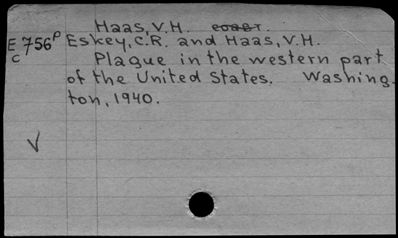 Haas, V.H. coaut.
E 756p Eskey, C.R. and Haas, V.H.
c Plague in the western part
of the United States. Washing
ton, 1940.